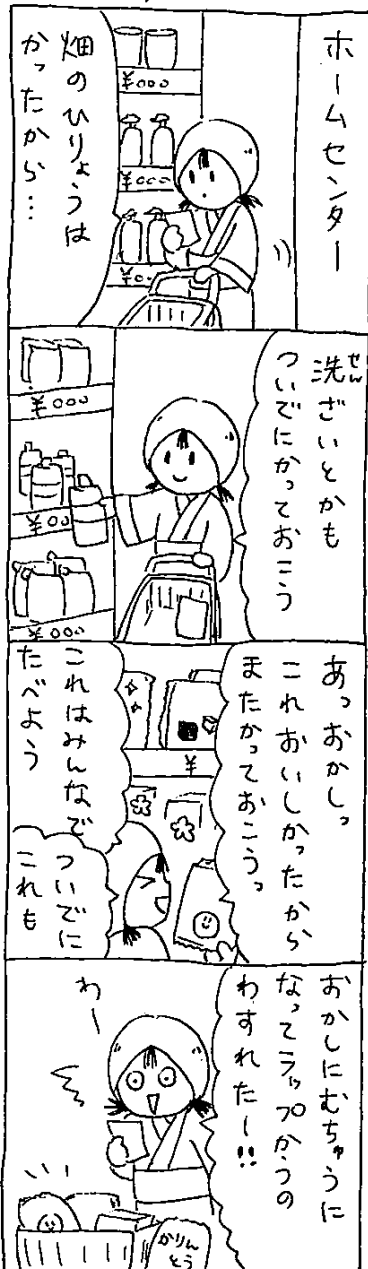 ホームセンター
畑のひりょうは
かったから…
¥000
¥000
¥00
洗ざいとかも
せん
ついでにかっておこう
¥000
¥00
¥000
あっおかしっ
これおいしかったから
またかっておこうっ
¥
これはみんなで
たべよう
ついでに
これも
おかしにむちゅうに
なってラップかうの
わすれたー!!
わー
かりん
とう